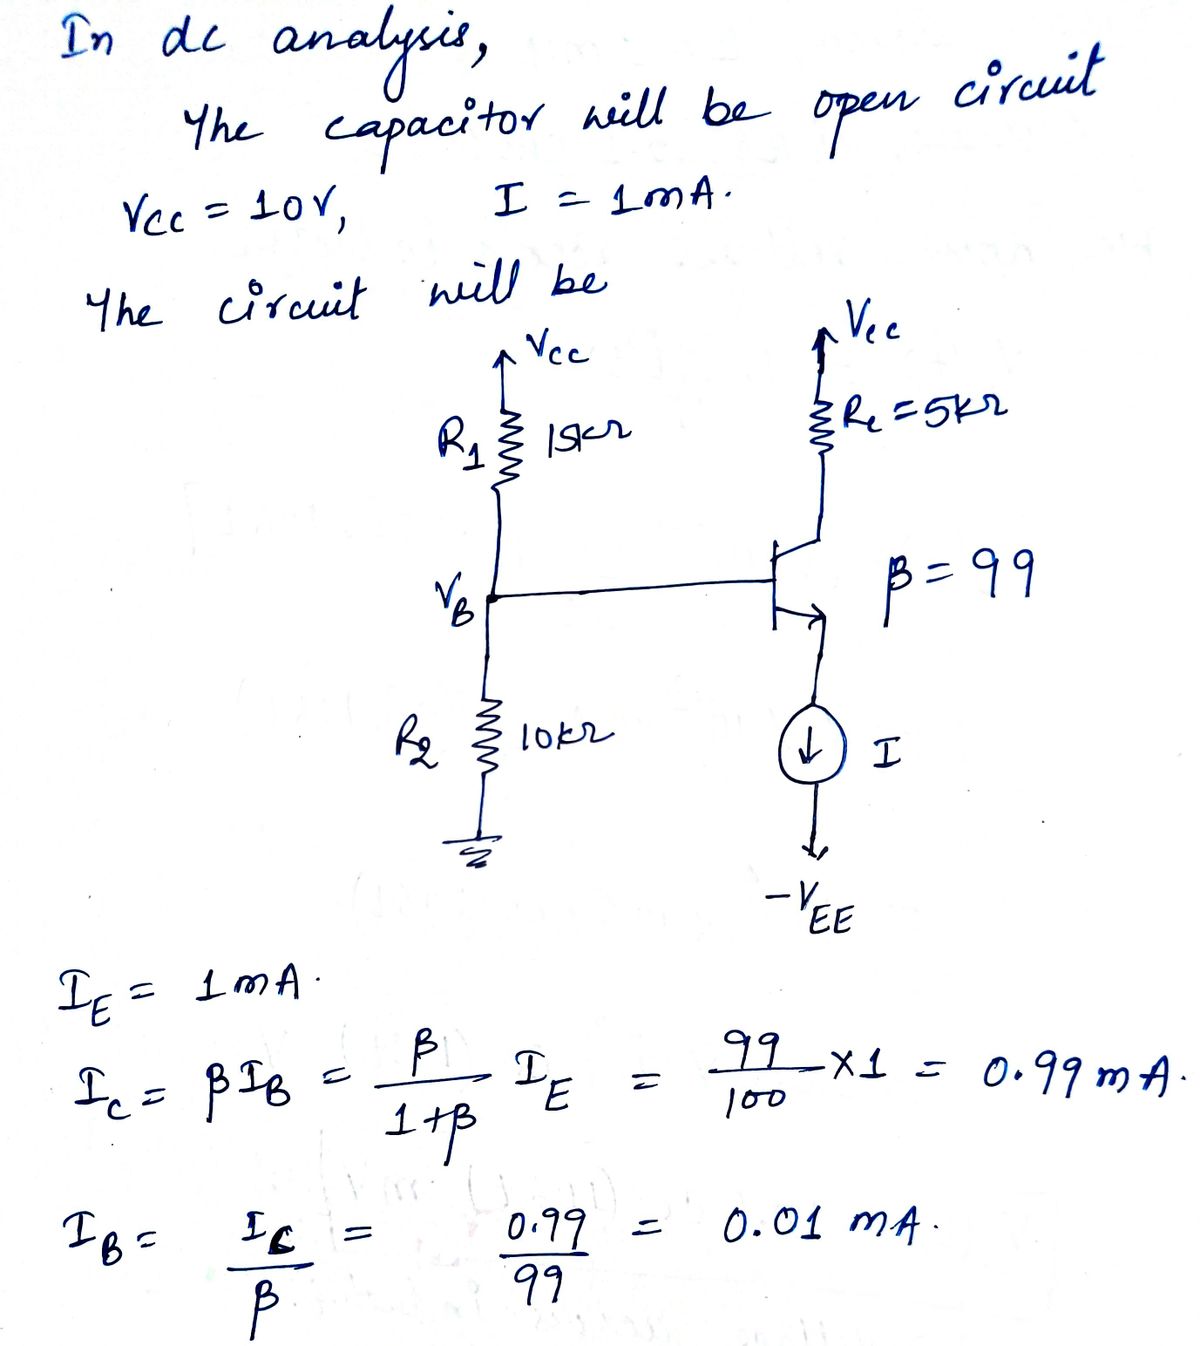 In dc analysis,
The capacitor will be open circuit
Vcc = 10V, I = 1mA.
The circuit will be
Vcc
Vcc
R1 15kΩ
Rc = 5kΩ
VB
β = 99
R2 10kΩ
I
-VEE
IE = 1mA.
Ic = βIB = β/(1+β) IE = 99/100 ×1 = 0.99 mA.
IB = Ic/β = 0.99/99 = 0.01 mA.